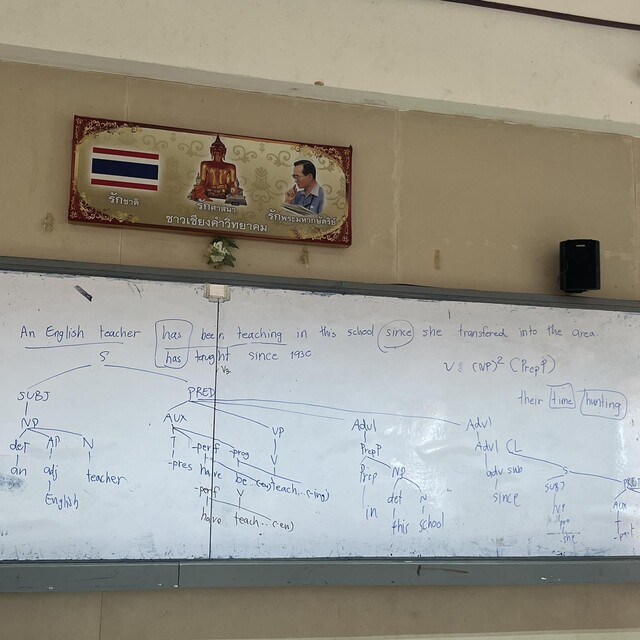 รักชาติ
รักศาสนา
รักพระมหากษัตริย์
ชาวเชียงคำวิทยาคม
An English teacher has been teaching in this school since she transfered into the area.
has taught since 1930
vs.
V (NP)² (PrepP)
their time hunting
S
SUBJ PRED
NP AUX VP Advl Advl
det AP N T -perf -prog V PrepP Advl CL
an adj teacher -pres have be teach...(-ing) Prep NP adv sub S
English -perf V in det N since SUBJ PRED
have teach...(-en) this school NP AUX
she T